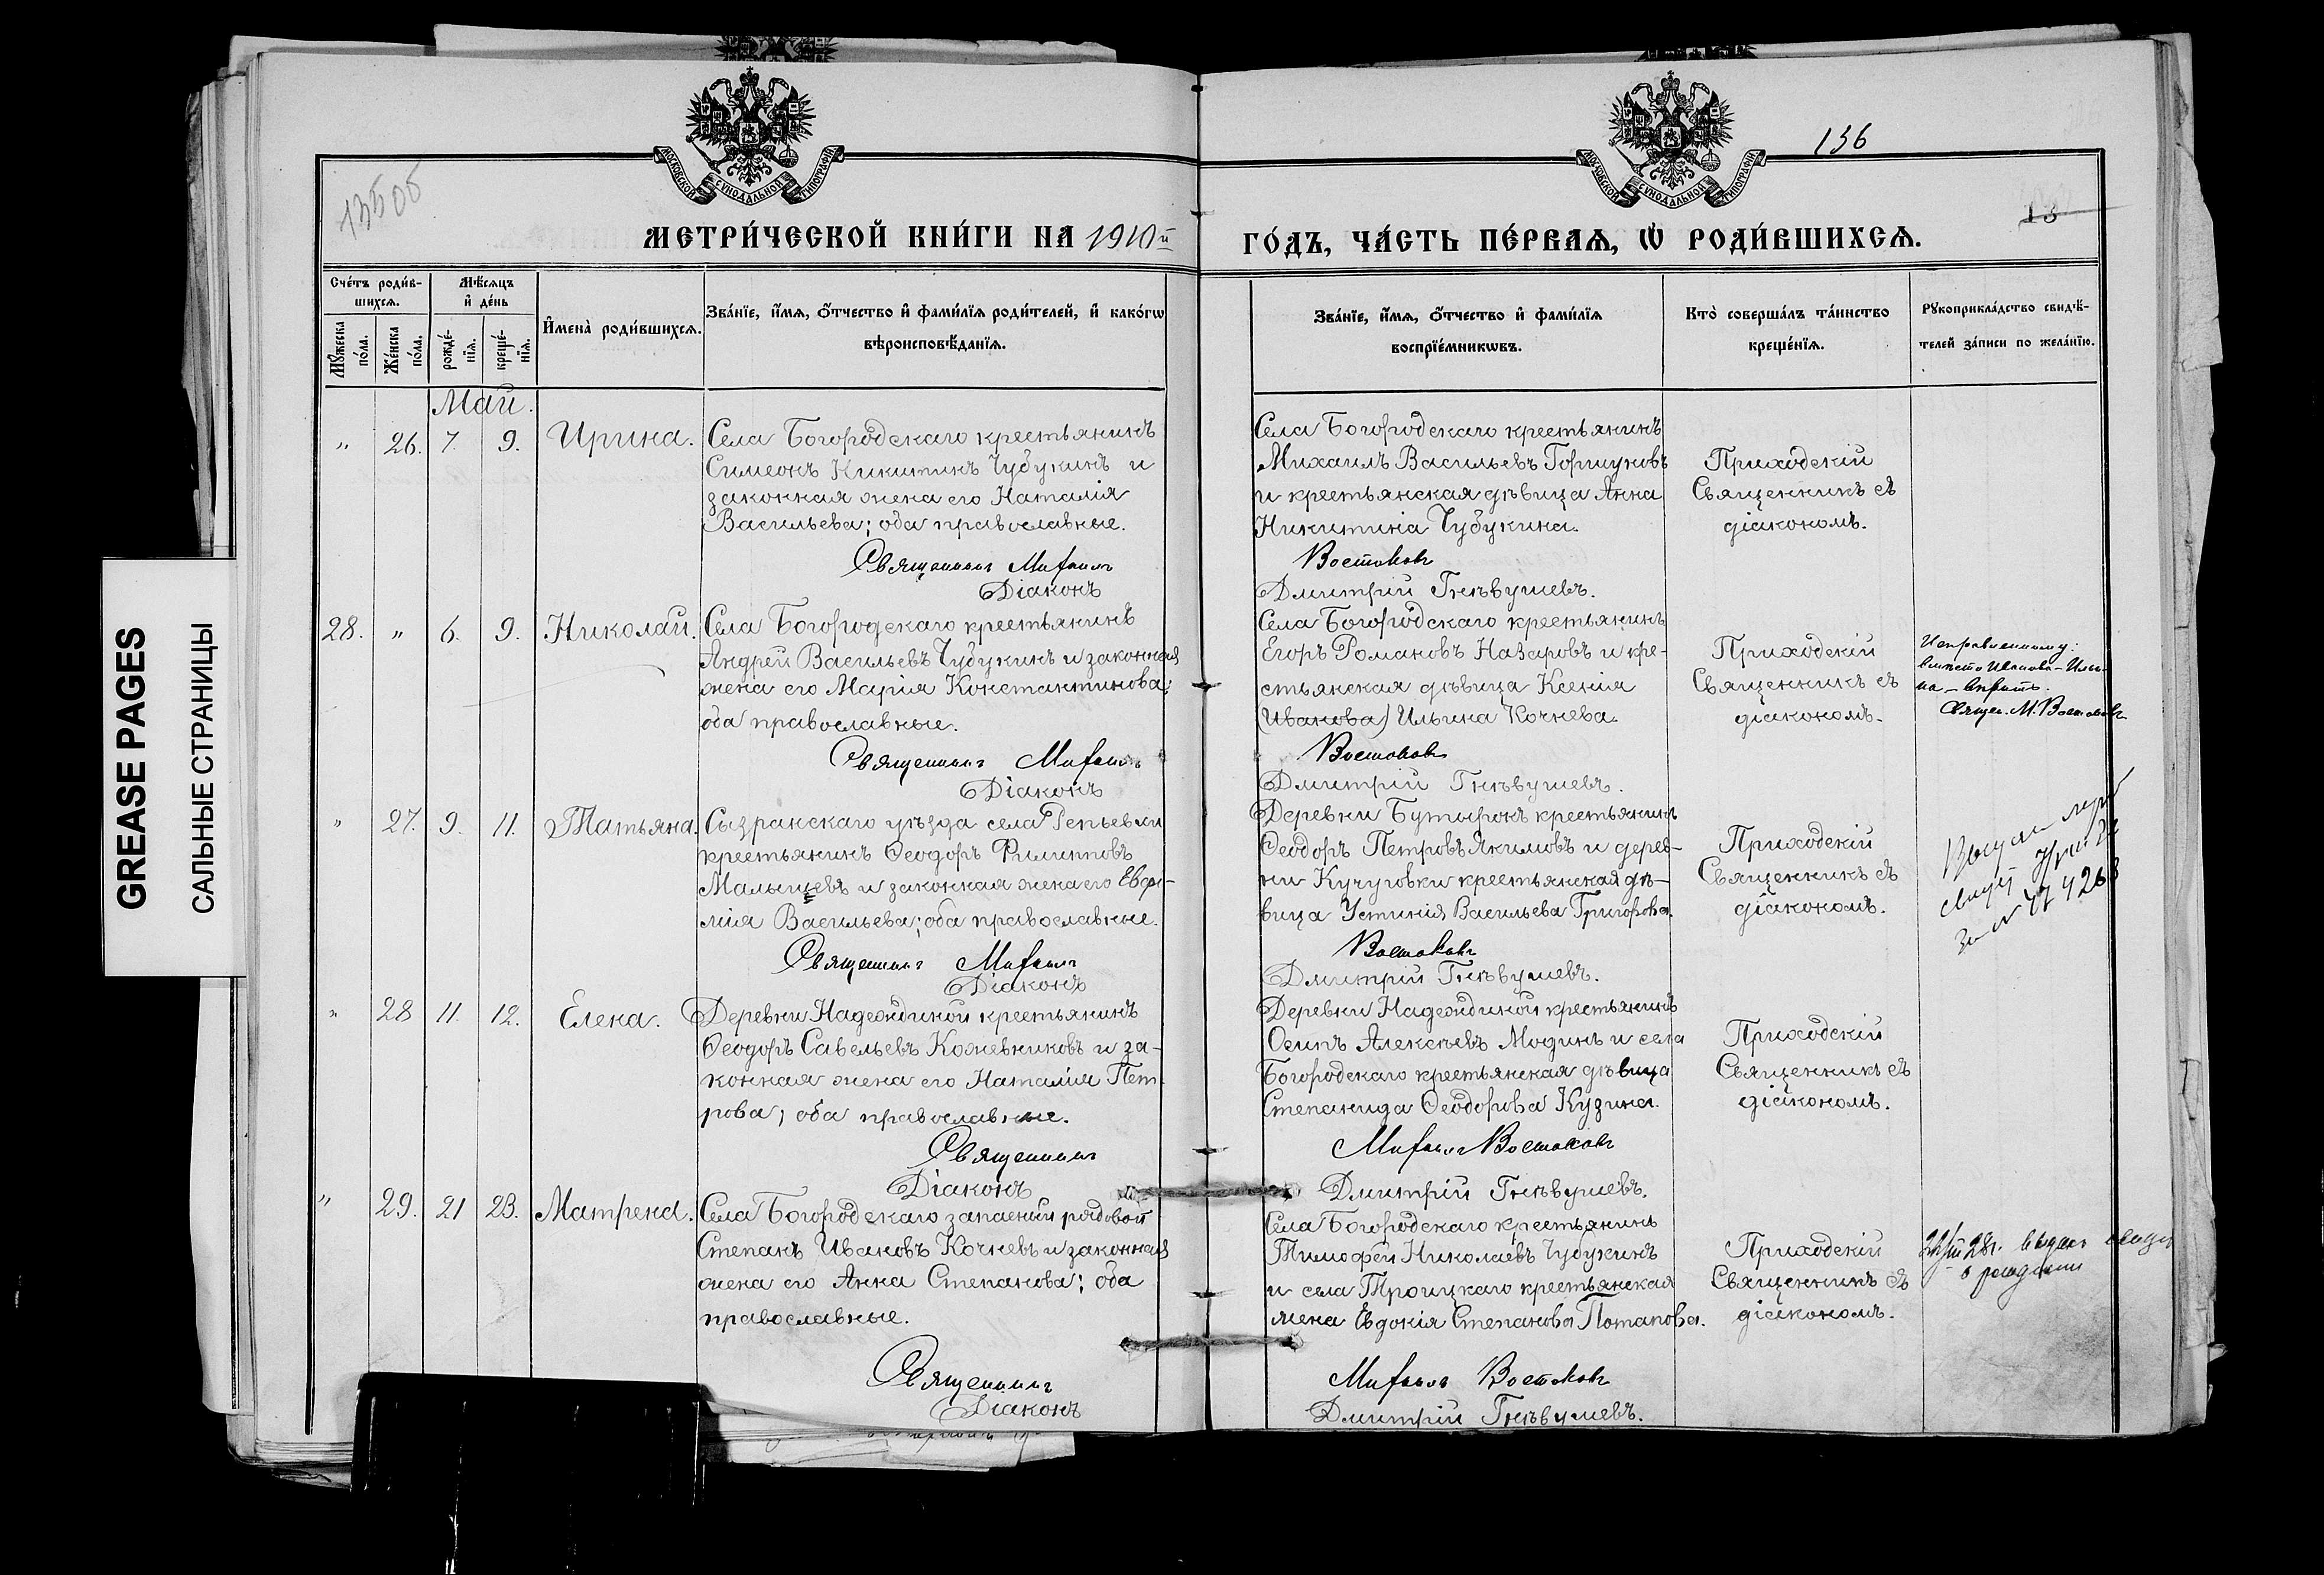 136
13505
13
МОСКОВСКОЙ СѴНОДАЛЬНОЙ ТИПОГРАФІИ
МОСКОВСКОЙ СѴНОДАЛЬНОЙ ТИПОГРАФІИ
МЕТРИ́ЧЕСКОЙ КНИ́ГИ НА 1910й ГО́ДЪ, ЧА́СТЬ ПЕ́РВАѦ, Ѡ РОДИ́ВШИХСѦ.
Сче́тъ роди́в-
шихсѧ.
Мꙋжеска по́ла.
Же́нска по́ла.
Мѣ́сѧцъ
и҆ де́нь
рожде́-
нїѧ.
креще́-
нїѧ.
И҆мена̀ роди́вшихсѧ.
Зва́нїе, и҆́мѧ, ѻ҆́тчество и҆ фами́лїѧ роди́телей, и҆ како́гѡ
вѣроисповѣ́данїѧ.
Зва́нїе, и҆́мѧ, ѻ҆́тчество и҆ фами́лїѧ
воспрїе́мникѡвъ.
Кто̀ соверша́лъ та́инство
креще́нїѧ.
Рꙋкоприкла́дство свидѣ́-
телей за́писи по жела́нїю.
Май.
" 26. 7. 9. Ирина.
Села Богородскаго крестьянинъ
Симеонъ Никитинъ Чубукинъ и
законная жена его Наталія
Васильева; оба православные.
Священникъ Михаилъ
Діаконъ
Села Богородскаго крестьянинъ
Михаилъ Васильевъ Горшуновъ
и крестьянская дѣвица Анна
Никитина Чубукина.
Востоковъ
Дмитрій Гнѣвушевъ.
Приходскій
Священникъ съ
діакономъ.
28. " 6. 9. Николай.
Села Богородскаго крестьянинъ
Андрей Васильевъ Чубукинъ и законная
жена его Марія Константинова;
оба православные.
Священникъ Михаилъ
Діаконъ
Села Богородскаго крестьянинъ
Егоръ Романовъ Назаровъ и кре-
стьянская дѣвица Ксенія
(Иванова) Ильина Кочнева.
Востоковъ
Дмитрій Гнѣвушевъ.
Приходскій
Священникъ съ
діакономъ.
Исправленному:
вмѣсто Иванова - Ильи-
на - вѣрить.
Священ. М. Востоковъ
" 27. 9. 11. Татьяна.
Сызранскаго уѣзда села Репьевки
крестьянинъ Ѳеодоръ Филипповъ
Малышевъ и законная жена его Евфи-
мія Васильева; оба православные.
Священникъ Михаилъ
Діаконъ
Деревни Бутырокъ крестьянинъ
Ѳеодоръ Петровъ Якимовъ и дерев-
ни Кучуговки крестьянская дѣ-
вица Устинія Васильева Григорьева.
Востоковъ
Дмитрій Гнѣвушевъ.
Приходскій
Священникъ съ
діакономъ.
за №
" 28 11. 12. Елена.
Деревни Надеждиной крестьянинъ
Ѳеодоръ Савельевъ Кожевниковъ и за-
конная жена его Наталія Пет-
рова; оба православные.
Священникъ
Діаконъ
Деревни Надеждиной крестьянинъ
Осипъ Алексѣевъ Модинъ и села
Богородскаго крестьянская дѣвица
Степанида Ѳеодорова Кузина.
Михаилъ Востоковъ
Дмитрій Гнѣвушевъ.
Приходскій
Священникъ съ
діакономъ.
" 29. 21 23. Матрена.
Села Богородскаго запасный рядовой
Степанъ Ивановъ Кочневъ и законная
жена его Анна Степанова; оба
православные.
Священникъ
Діаконъ
Села Богородскаго крестьянинъ
Тимофей Николаевъ Чубукинъ
и села Троицкаго крестьянская
жена Евдокія Степанова Потапова.
Михаилъ Востоковъ
Дмитрій Гнѣвушевъ.
Приходскій
Священникъ съ
діакономъ.
28г. выдано
о рождении
GREASE PAGES
САЛЬНЫЕ СТРАНИЦЫ